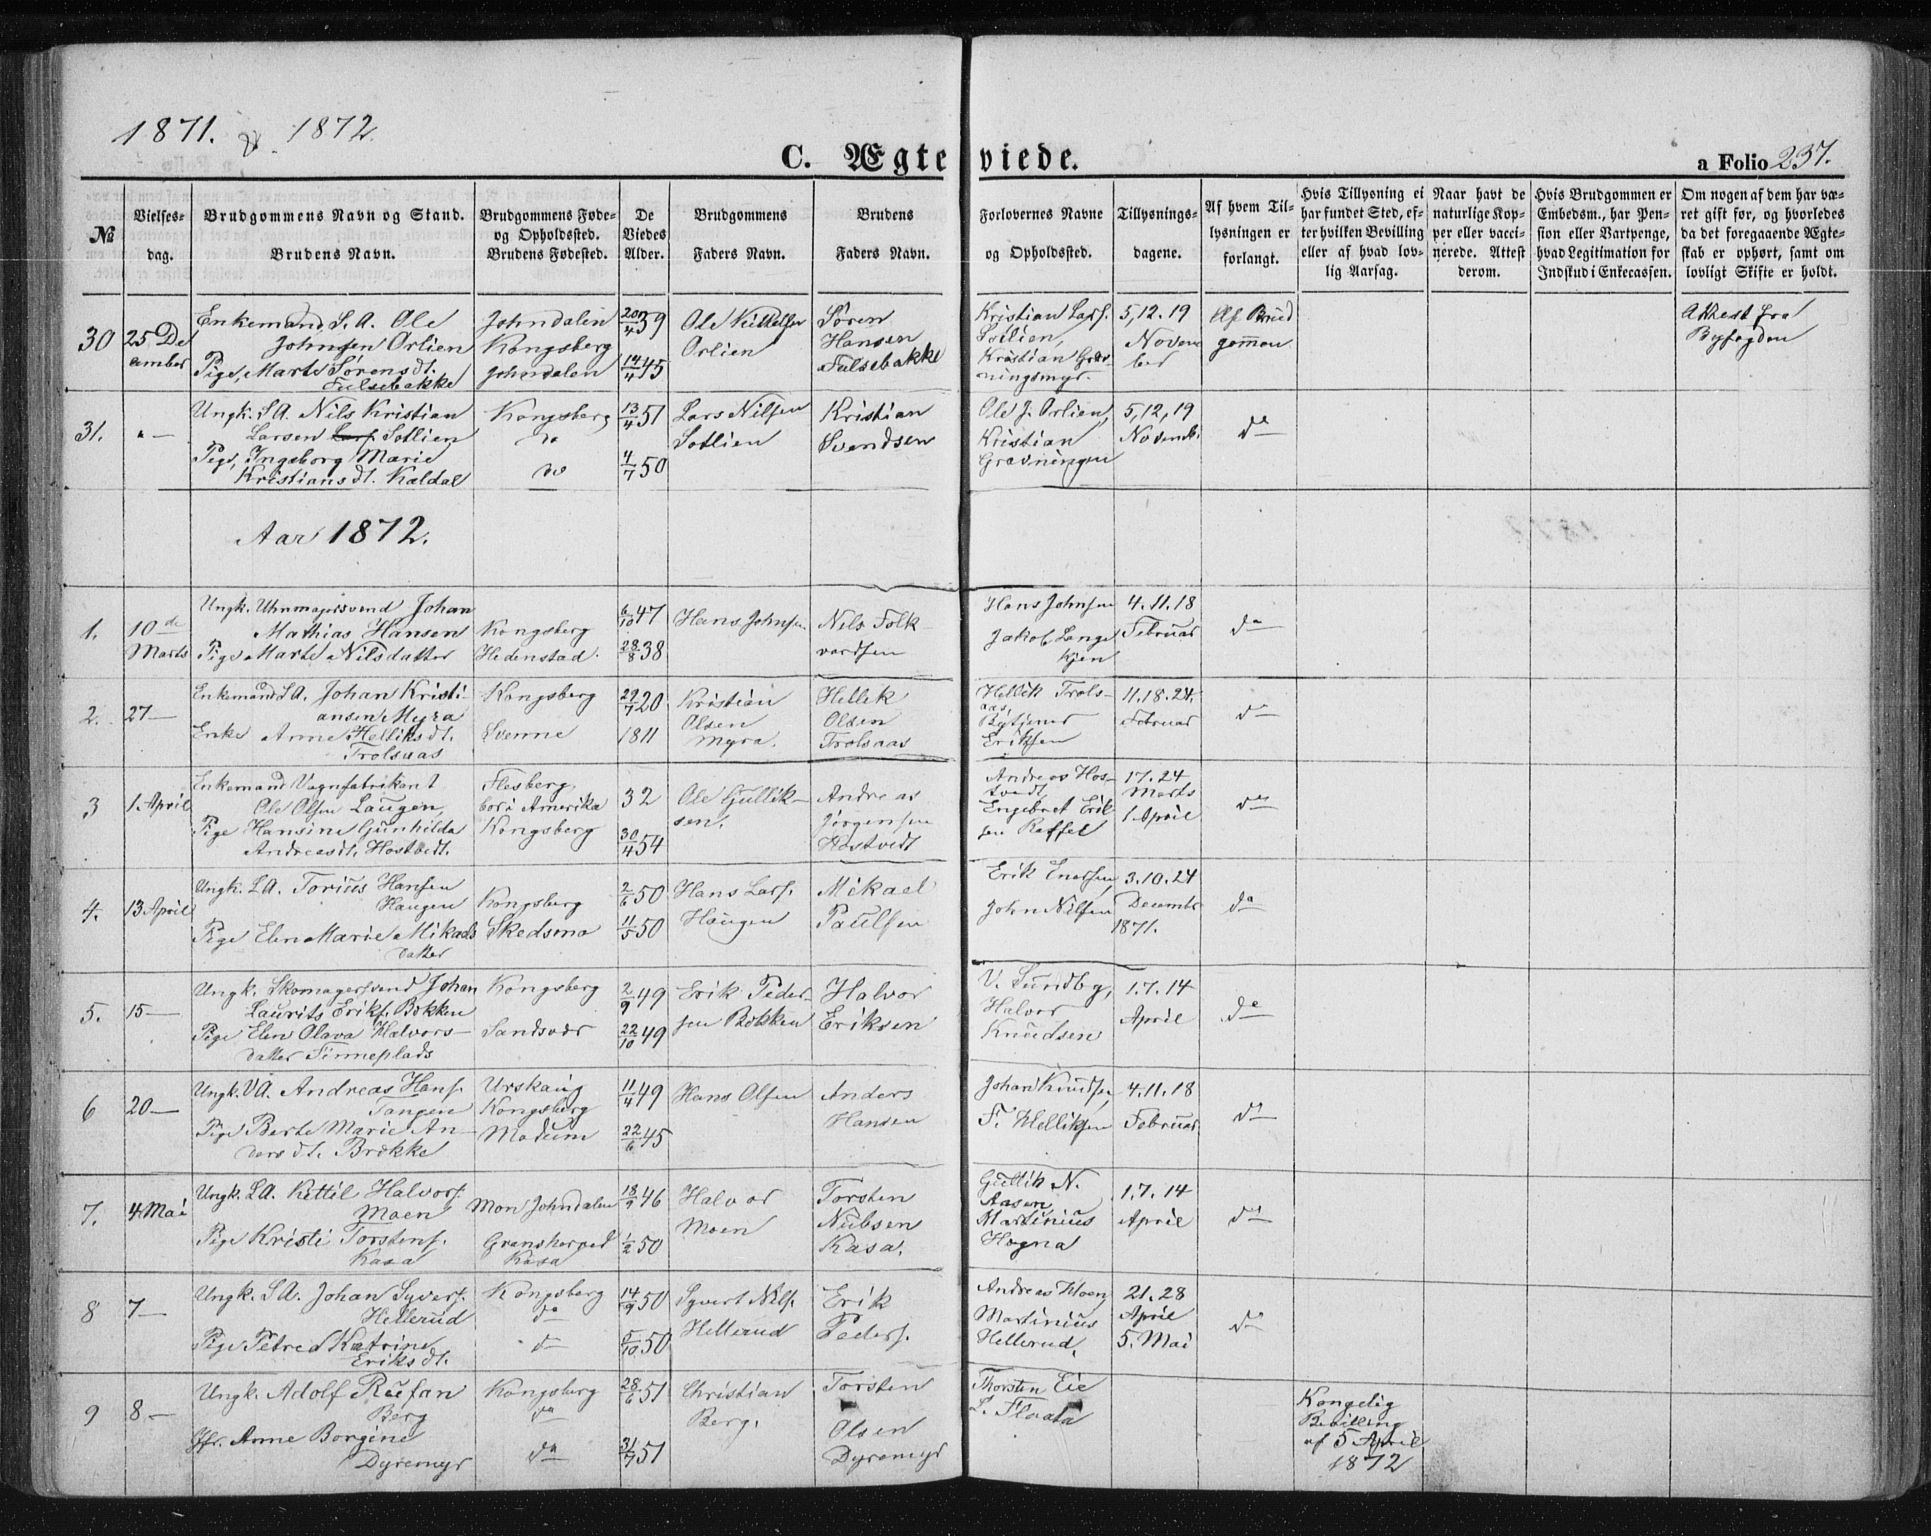 1871. & 1872.
C. Ægteviede.
a Folio 237.
No
Vielses-
dag.
Brudgommens Navn og Stand.
Brudens Navn.
Brudgommens Føde-
og Opholdssted.
Brudens Fødested.
De
Viedes
Alder.
Brudgommens
Faders Navn.
Brudens
Faders Navn.
Forlovernes Navne
og Opholdssted.
Tillysnings-
dagene.
Af hvem Til-
lysningen er
forlangt.
Hvis Tillysning ei
har fundet Sted, ef-
ter hvilken Bevilling
eller af hvad lov-
lig Aarsag.
Naar havt de
naturlige Kop-
per eller vacci-
nerede. Attest
derom.
Hvis Brudgommen er
Embedsm., har Pen-
sion eller Vartpenge,
hvad Legitimation for
Indskud i Enkecassen.
Om nogen af dem har væ-
ret gift før, og hvorledes
da det foregaaende Ægte-
skab er ophørt, samt om
lovligt Skifte er holdt.
30
25 De
cember
Enkemand S. A. Ole
Johnsen Orlien
Pige, Marte Sørensdt.
Fulsebakke
Johndalen
Kongsberg
Johndalen
20/4 39
14/4 45
Ole
Orlien
Søren
Hansen
Fulsebakke
Kristian Lars.
Sotlien,
Kristian Græv-
ningsmyr.
5, 12, 19
Novem
ber
Af Brud
gommen
Attest fra
Byfogden
31.
" —
Ungk. S.A. Nils Kristian
Larsen Sotlien
Pige, Ingeborg Marie
Kristiansdt. Kaldal
Kongsberg
do
do
13/4 51
4/7 50
Lars Nilsen
Sotlien
Kristian
Svendsen
Ole J. Orlien,
Kristian
Grævningen
5, 12, 19
Novemb.
do
Aar 1872.
1.
10de
Marts
Ungk. Uhrmagersvend Johan
Mathias Hansen
Pige Marte Nilsdatter
Kongsberg
Hedenstad.
6/10 47
28/8 38
Hans Johnsen
Nils Folk-
vardsen
Hans Johnsen
Jakob Lange
kjen
4. 11. 18
Februar
do
2.
27 —
Enkemand S.A. Johan Kristi-
ansen Myra
Enke Anne Helliksdt.
Trolsaas
Kongsberg
Svenne
29/7 20
1811
Kristian
Olsen
Myra.
Hellik
Olsen
Trolsaas
Hellik Trols-
aas,
Bytjener
Eriksen
11. 18. 24.
Februar
do
3
1. April
Enkemand Vognfabrikant
Ole Olsen Laugen,
Pige Hansine Gunhilda
Andreasdt. Hostvedt.
Flesberg,
bor i Amerika
Kongsberg
32
30/4 54
Ole Gullik-
sen.
Andreas
Jørgensen
Hostvedt
Andreas Hos-
tvedt
Engebret Erik
sen Raffel
17. 24
Marts
1. April
do
4.
13 April
Ungk. S.A. Torius Hansen
Haugen
Pige Elen Marie Mikaels
datter
Kongsberg
Skedsmo
2/6 50
11/5 50
Hans Lars.
Haugen
Mikael
Paulsen
Erik Enersen,
John Nilsen
3. 10. 24
Decembr
1871.
do
5.
15 —
Ungk. Skomagersvend Johan
Laurits Eriks. Bokken
Pige Elen Olava Halvors-
datter Finneplads
Kongsberg
Sandsvær
2/9 49
22/10 49
Erik Peder-
sen Bokken
Halvor
Eriksen
V. Sundby,
Halvor
Knudsen
1. 7. 14
April
do
6
20 —
Ungk. V.A. Andreas Hans.
Tangen
Pige Berte Marie An-
dersdt. Brokke
Urskaug
Kongsberg
Modum
11/4 49
22/6 45
Hans Olsen
Anders
Hansen
Johan Knudsen,
F. Helliksen
4. 11. 18
Februar
do
7.
4 Mai
Ungk. S.A. Kittil Halvors.
Moen
Pige Kristi Torstens.
Kasa
Mon Johndalen
Gransherred
Kasa
18/9 46
1/2 50
Halvor
Moen
Torsten
Nubsen
Kasa.
Gullik N.
Aasen
Martinius
Hogna
1. 7. 14
April
do
8
7 —
Ungk. S.A. Johan Syvers.
Hellerud
Pige Petrea Katrine
Eriksdt.
Kongsberg
do
do
14/9 50
5/10 50
Syvert Nils.
Hellerud
Erik
Peders.
Andreas Moen
Martinius
Hellerud,
21. 28
April
5. Mai
do
9
8 —
Ungk. Adolf
Berg
Jfr. Anne Borgine
Dyremyr
Kongsberg
do
do
28/6 51
31/7 51
Christian
Berg.
Torsten
Olsen
Dyremyr
Thorsten Eie
L. Flaata
Kongelig
Bevilling
af 5 April
1872